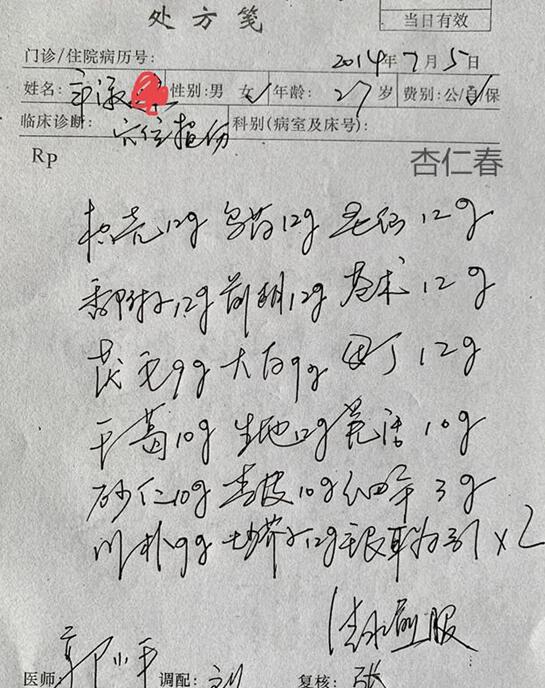 处方笺
当日有效
门诊/住院病历号: 2014年7月5日
姓名: 性别:男 女✓ 年龄: 27岁 费别:公/自/保
临床诊断: 穴位损伤 科别(病室及床号):
RP 杏仁春
枳壳12g 乌药12g 12g
12g 前胡12g 苍术12g
9g 大白9g 12g
干葛10g 生地12g 羌活10g
砂仁10g 青皮10g 细辛3g
川朴9g 12g 为引×2
清水煎服
医师: 郭小平 调配: 刘 复核: 张